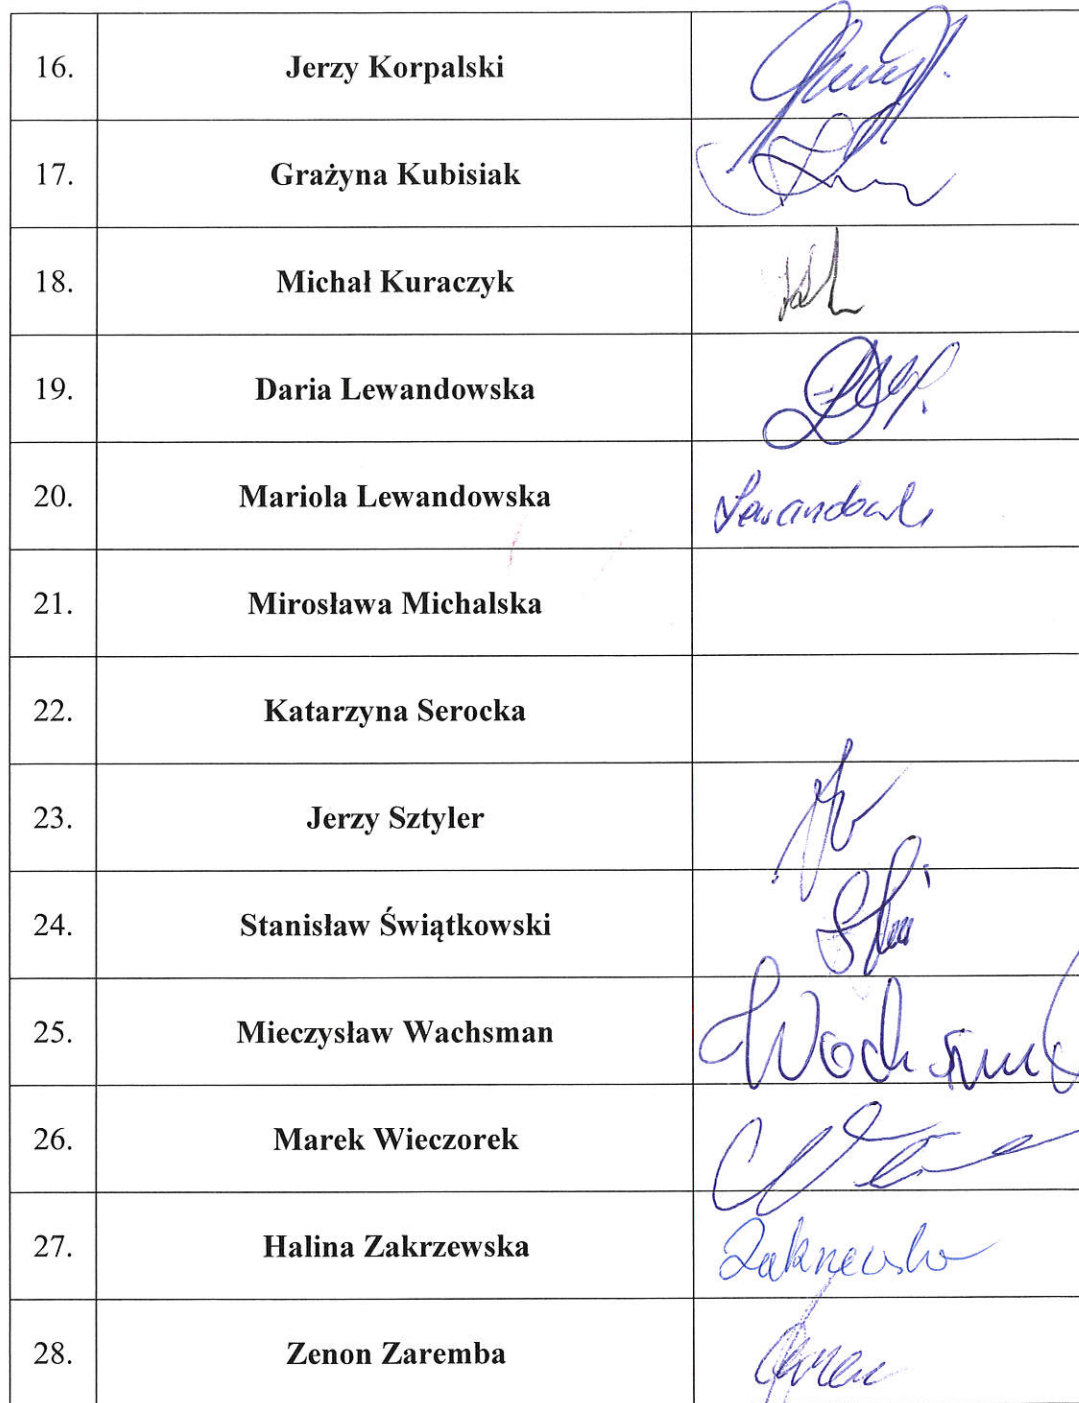 16. Jerzy Korpalski
17. Grażyna Kubisiak
18. Michał Kuraczyk
19. Daria Lewandowska
20. Mariola Lewandowska
21. Mirosława Michalska
22. Katarzyna Serocka
23. Jerzy Sztyler
24. Stanisław Świątkowski
25. Mieczysław Wachsman
26. Marek Wieczorek
27. Halina Zakrzewska
28. Zenon Zaremba